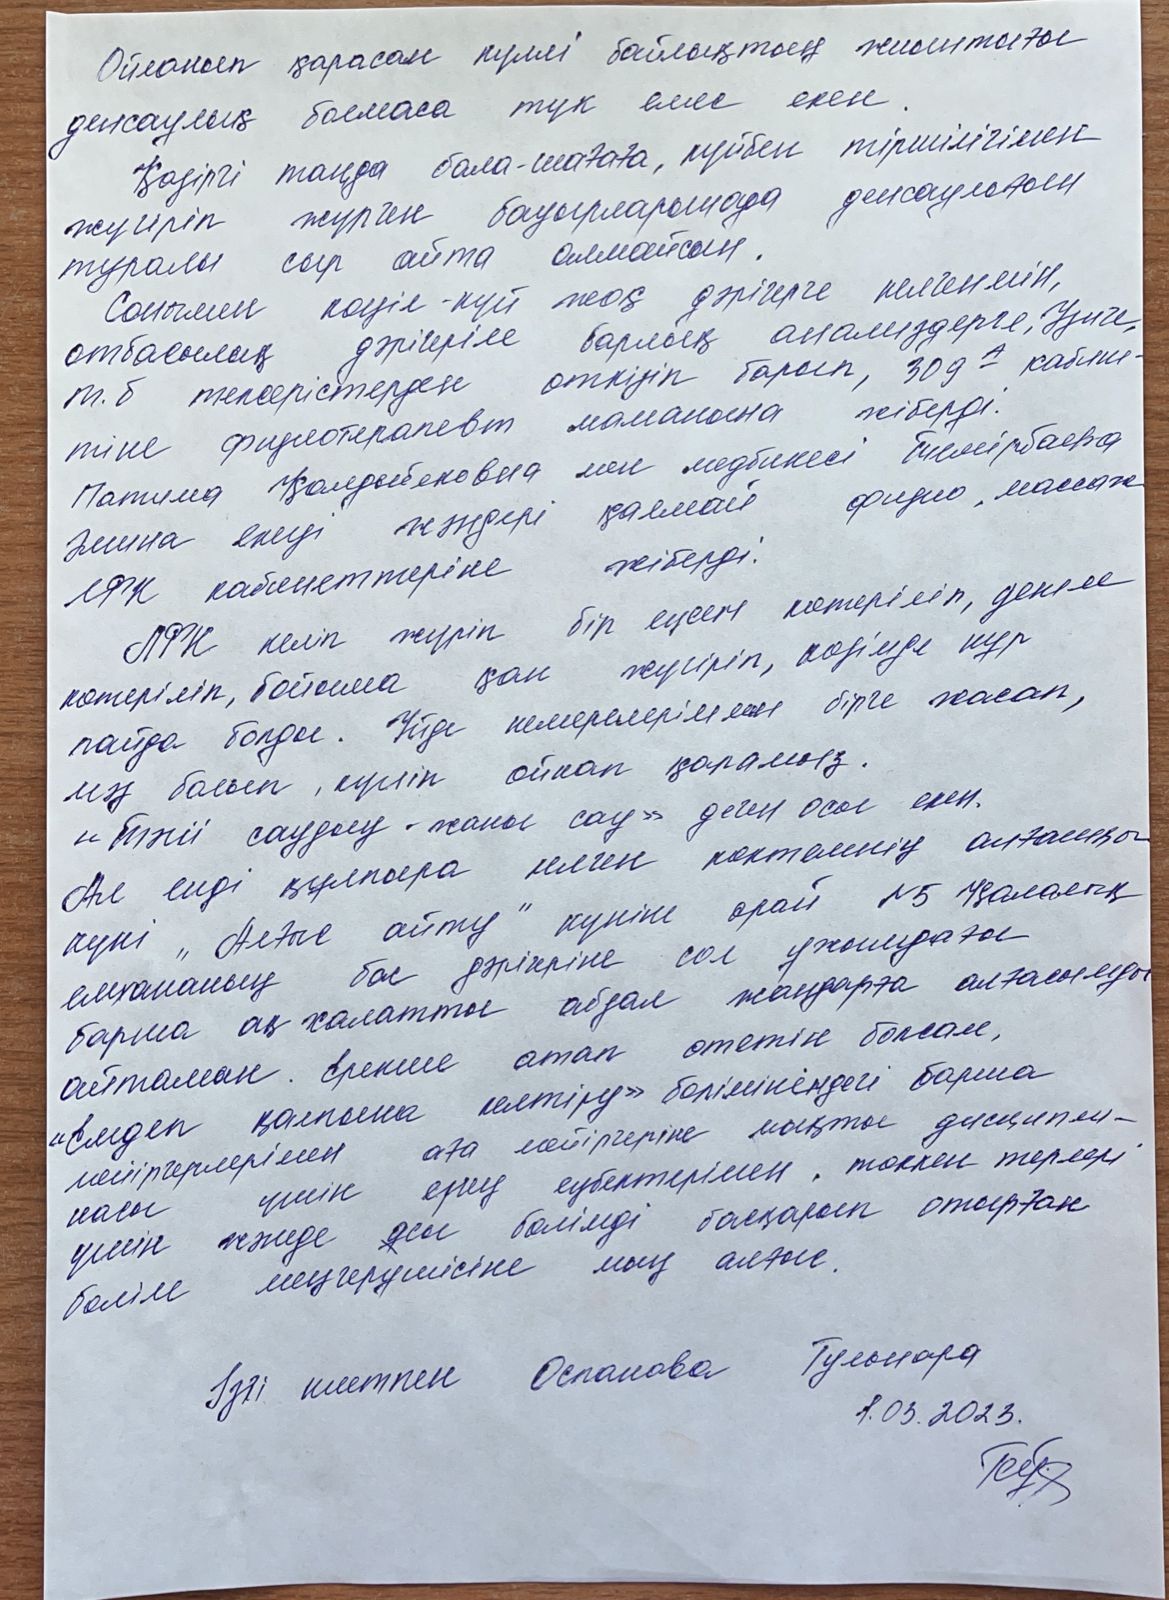 Ойланып қарасам күллі байлықтың жиынтығы
денсаулық болмаса түк емес екен.
Қазіргі таңда бала-шағаға, күйбең тіршілігімен
жүгіріп жүрген бауырларыңада денсаулығын
туралы сыр айта алмайсың.
Сонымен көңіл-күй жоқ дәрігерге келгенмін,
отбасылық дәрігерім барлық анализдерге, Узиге,
т.б тексерістерден өткізіп барып, 309 А кабине-
тіне физиотерапевт маманына жіберді.
Патима Қалдыбековна мен медбикесі Темірбаева
Әмина емді жәндері қалмай физио, массаж
ЛФК кабинеттеріне жіберді.
ЛФК келіп жүріп бір еңсем көтеріліп, денем
көтеріліп, бойыма қан жүгіріп, көзімде нұр
пайда болды. Үйде немерелеріммен бірге жасап,
мәз болып, күліп ойнап қаламыз.
«Тәні саудың - жаны сау» деген осы екен.
Ал енді құлпыра келген көктемнің алғашқы
күні „Алғыс айту" күніне орай №5 Қалалық
емхананың бас дәрігеріне сол ұжымдағы
барша ақ халатты абзал жандарға алғысымды
айтаман. Ерекше атап өтетін болсам,
«Емдеп қалпына келтіру» бөліміндегі барша
мейіргерлерімен аға мейіргеріне мықты дисципли-
насы үшін ерең еңбектерімен, төккен терлері
үшін және осы бөлімді басқарып отырған
бөлім меңгерушісіне мың алғыс.
Ізгі ниетпен Оспанова Гульнара
1.03.2023.